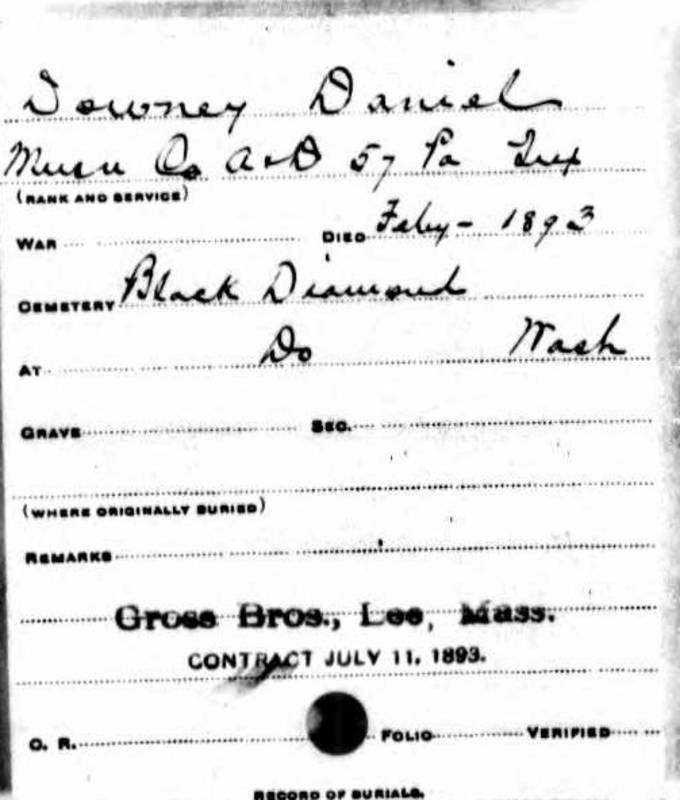 Downey Daniel
Musn Co A & D 57 Pa Inf
(RANK AND SERVICE)
WAR DIED Feby - 1893
CEMETERY Black Diamond
AT Do Wash
GRAVE SEC.
(WHERE ORIGINALLY BURIED)
REMARKS
Gross Bros., Lee, Mass.
CONTRACT JULY 11, 1893.
O. R. FOLIO VERIFIED
RECORD OF BURIALS.